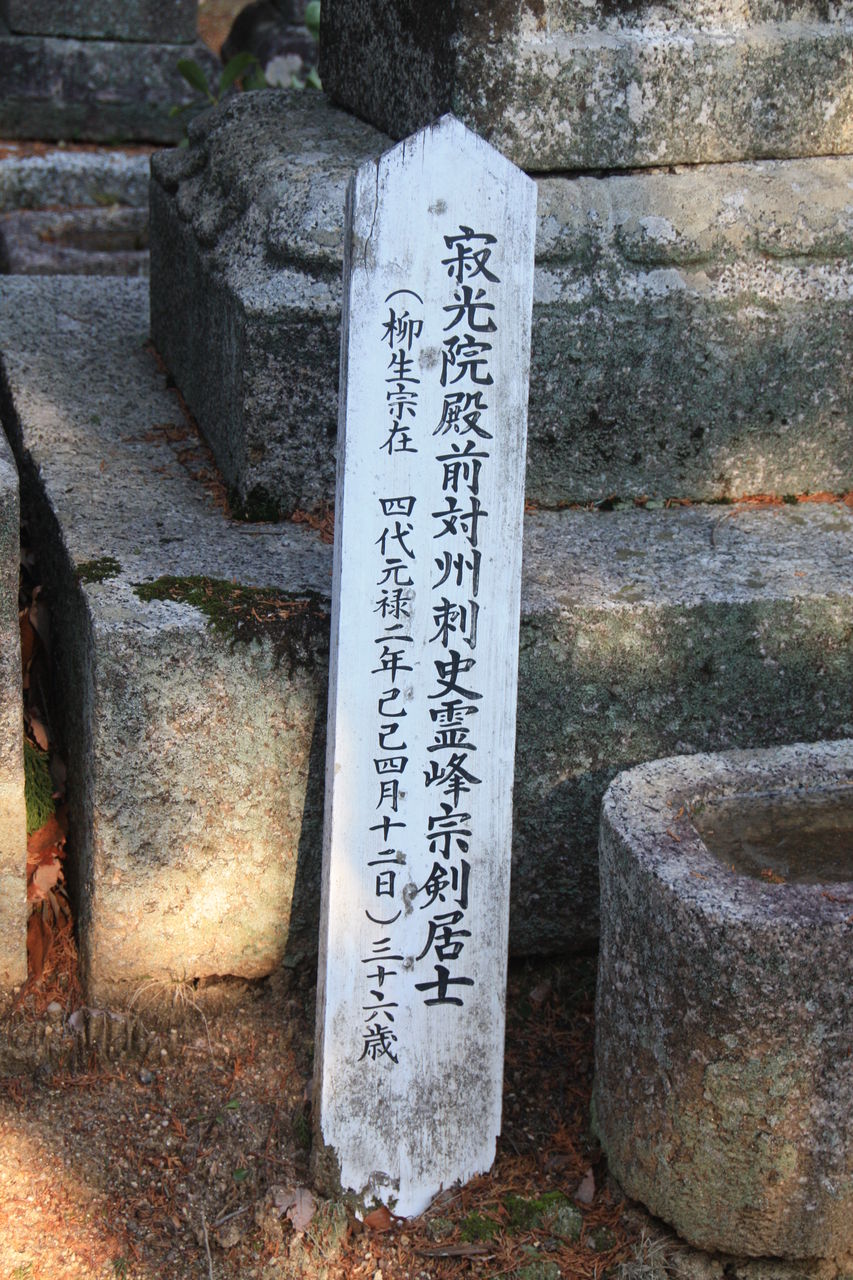 寂光院殿前対州刺史霊峰宗剣居士
(柳生宗在 四代元禄二年己己四月十二日)三十六歳